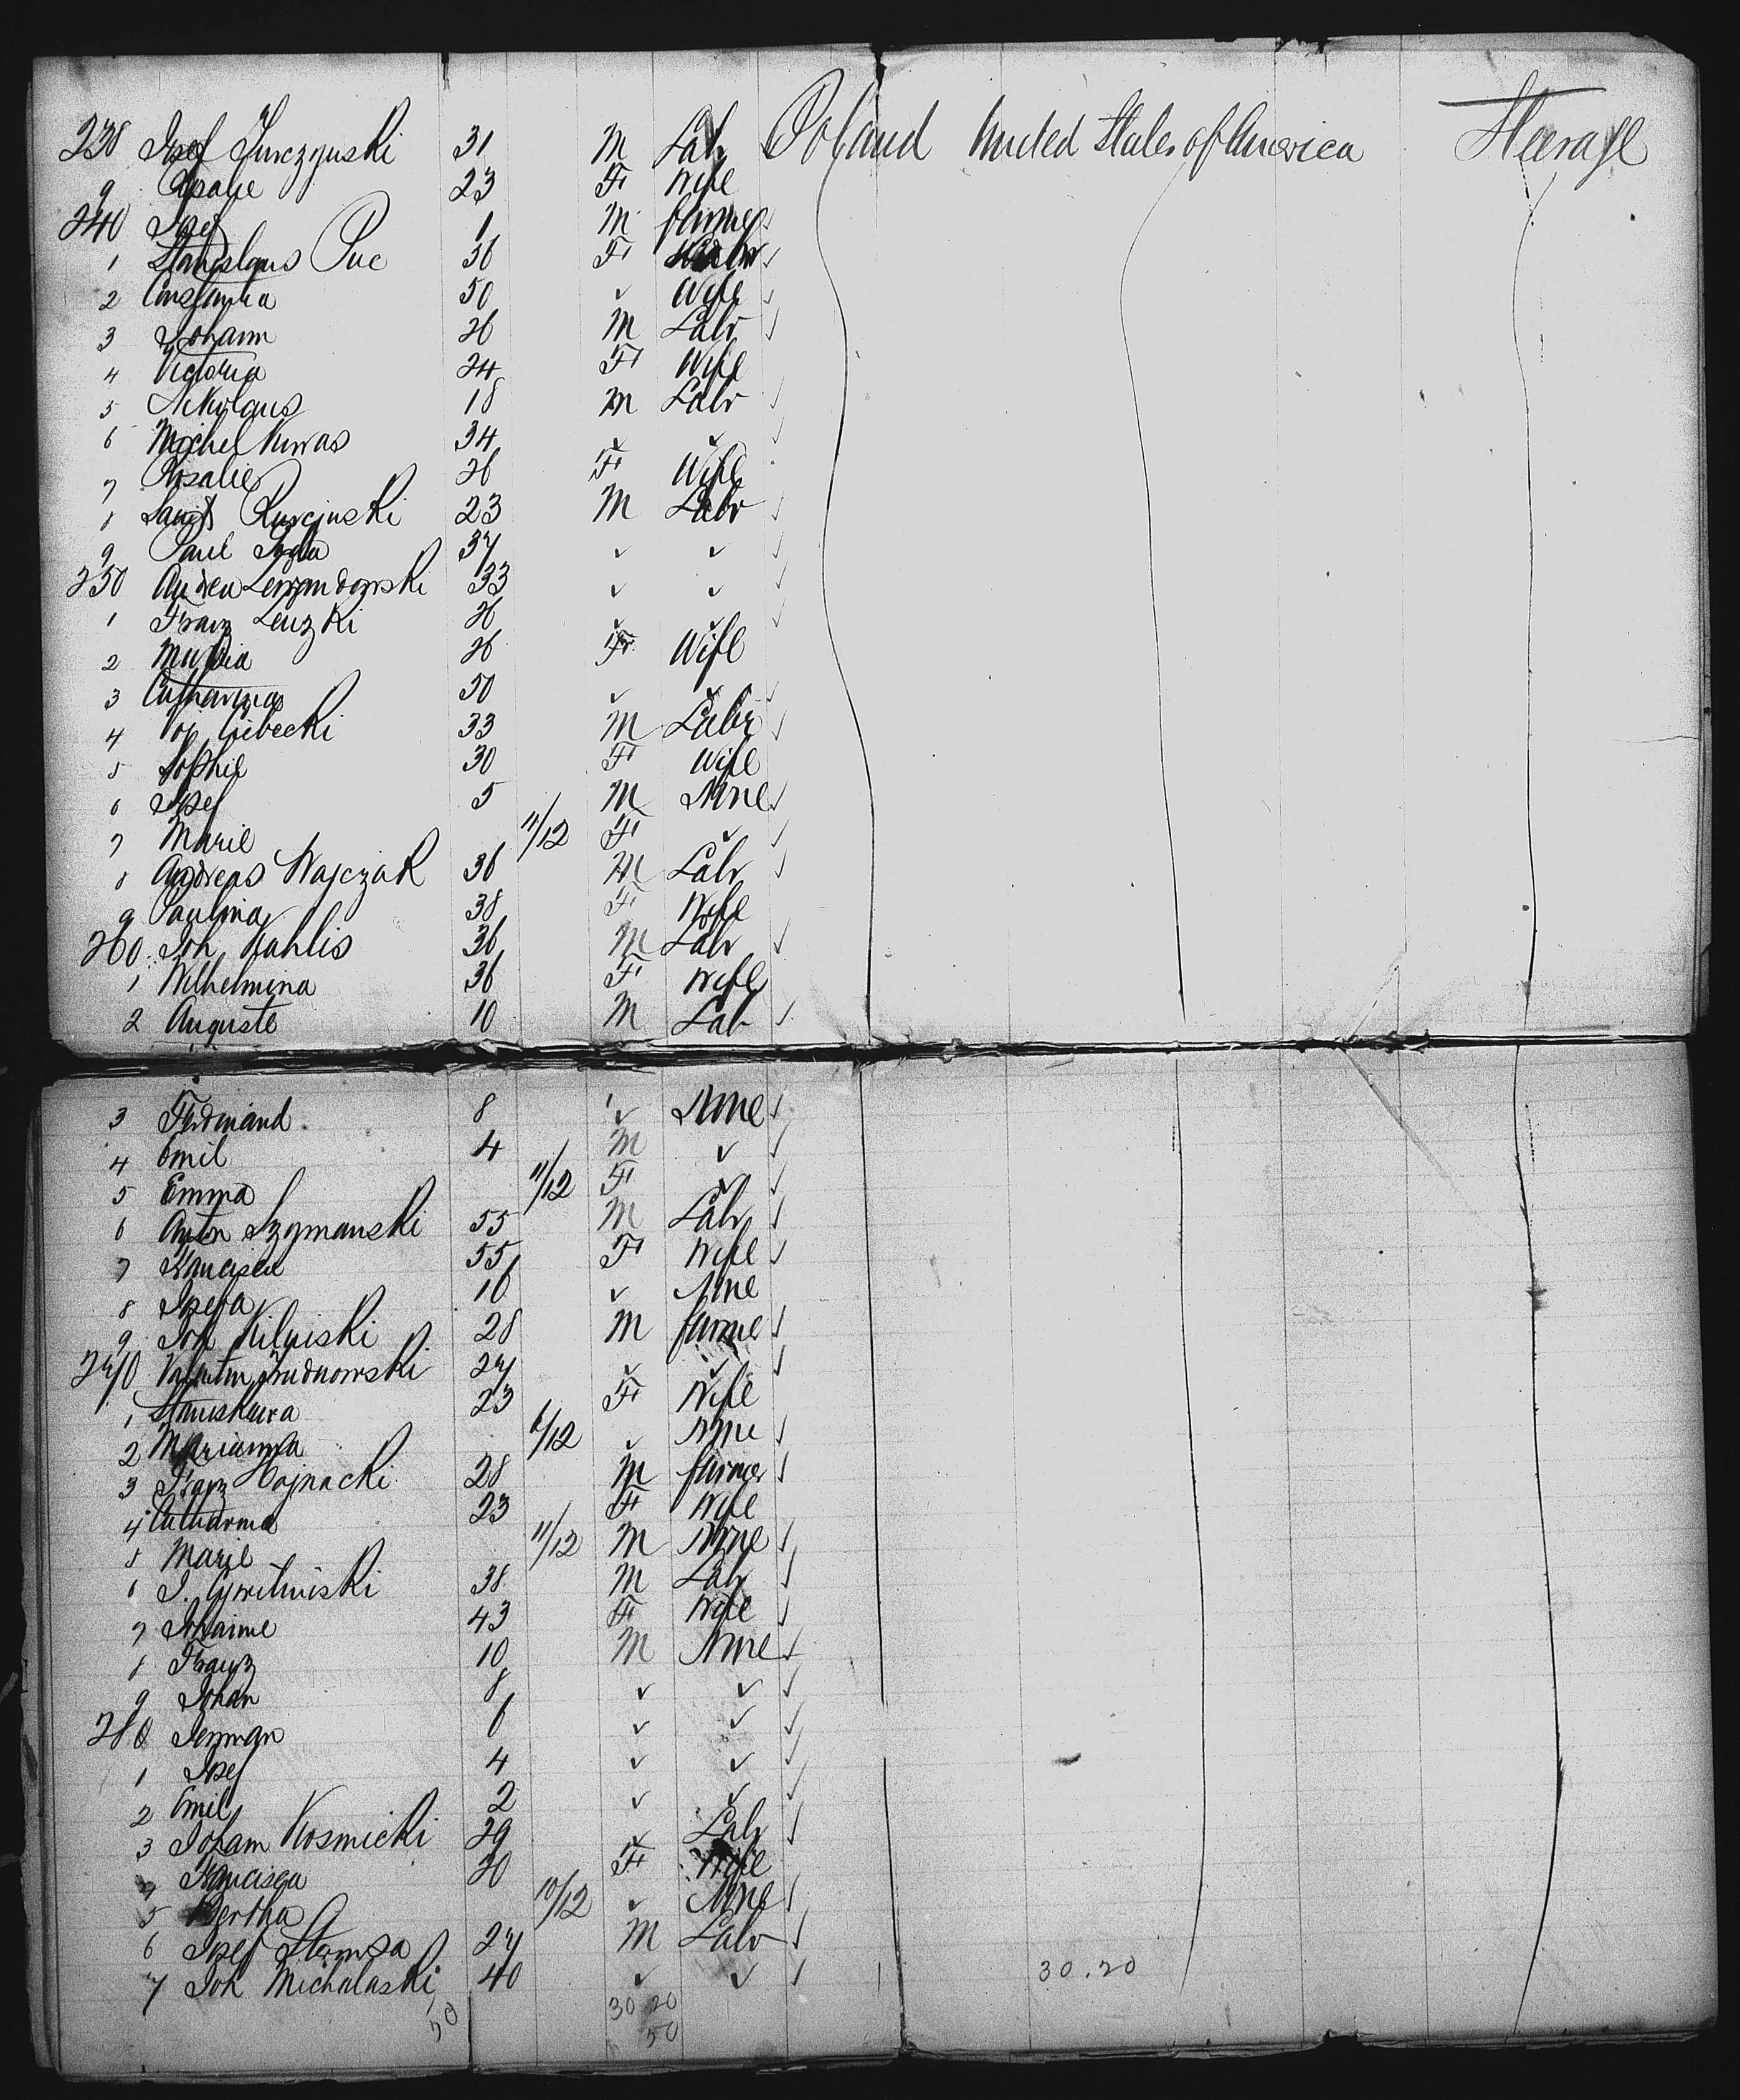 238 Josef Jurczynski 31 M Labr Poland United States of America Steerage
9 Rosalie 23 F Wife
240 Josef 1 M farmer
1 Stanislaus Puc 36 F
2 Constantia 50 ✓ Wife
3 Johann 26 M Labr
4 Victoria 24 F Wife
5 Nikolaus 18 M Labr
6 Michel Kuwas 34 ✓ ✓
7 Rosalie 26 F Wife
8 23 M Labr
9 Paul 37 ✓ ✓
250 Andrea Lewandowski 33 ✓ ✓
1 Franz Lenzki 26 ✓ ✓
2 26 F Wife
3 Catharina 50 ✓ ✓
4 33 M Labr
5 Sophie 30 F Wife
6 Josef 5 M None
7 Marie 11/12 F ✓
8 Andreas Wajczak 36 M Labr
9 Paulina 38 F Wife
260 Joh Kahlis 36 M Labr
1 Wilhelmina 36 F Wife
2 Auguste 10 M Lab
3 Ferdinand 8 ✓ None
4 Emil 4 M ✓
5 Emma 11/12 F ✓
6 Anton Szymanski 55 M Labr
7 55 F Wife
8 Josefa 16 ✓ None
9 Joh Kilinski 28 M farmer
270 Valentin Grudnowski 27 ✓ ✓
1 Stanislawa 23 F Wife
2 Marianna 6/12 ✓ None
3 Franz Hojnacki 28 M farmer
4 Catharina 23 F Wife
5 Marie 11/12 M None
6 J. 38 M Labr
7 Johanne 43 F Wife
8 Franz 10 M None
9 Johan 8 ✓ ✓
280 Herman 6 ✓ ✓
1 Josef 4 ✓ ✓
2 Emil 2 ✓ ✓
3 Johann Kosmicki 29 ✓ Labr
4 Francisca 20 F Wife
5 Bertha 10/12 ✓ None
6 Josef 27 M Labr
7 Joh Michalaski 40 ✓ ✓ 30.20
50 30 20
50